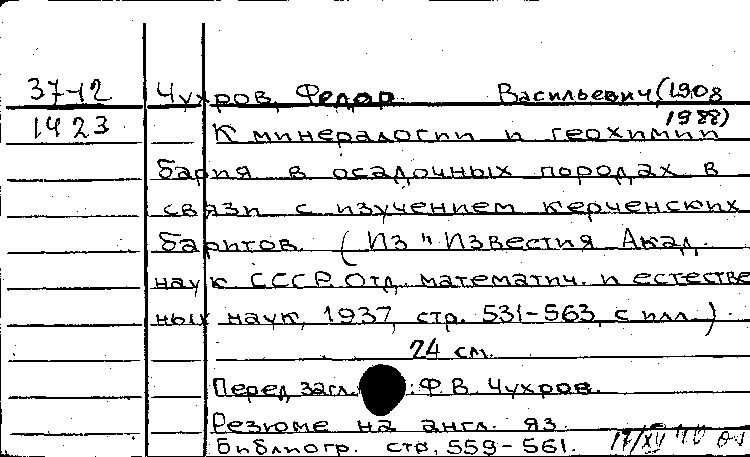 37-12 Чухров, Федор Васильевич (1908
1423 1988)
К минералогии и геохимии
бария в осадочных породах в
связи с изучением керченских
баритов. (Из "Известия Акад.
наук СССР. Отд. математич. и естестве
ных наук, 1937, стр. 531-563, с илл.)
24 см.
Перед загл.: Ф.В. Чухров.
Резюме на англ. яз.
Библиогр. стр. 559-561. 17/XII 40